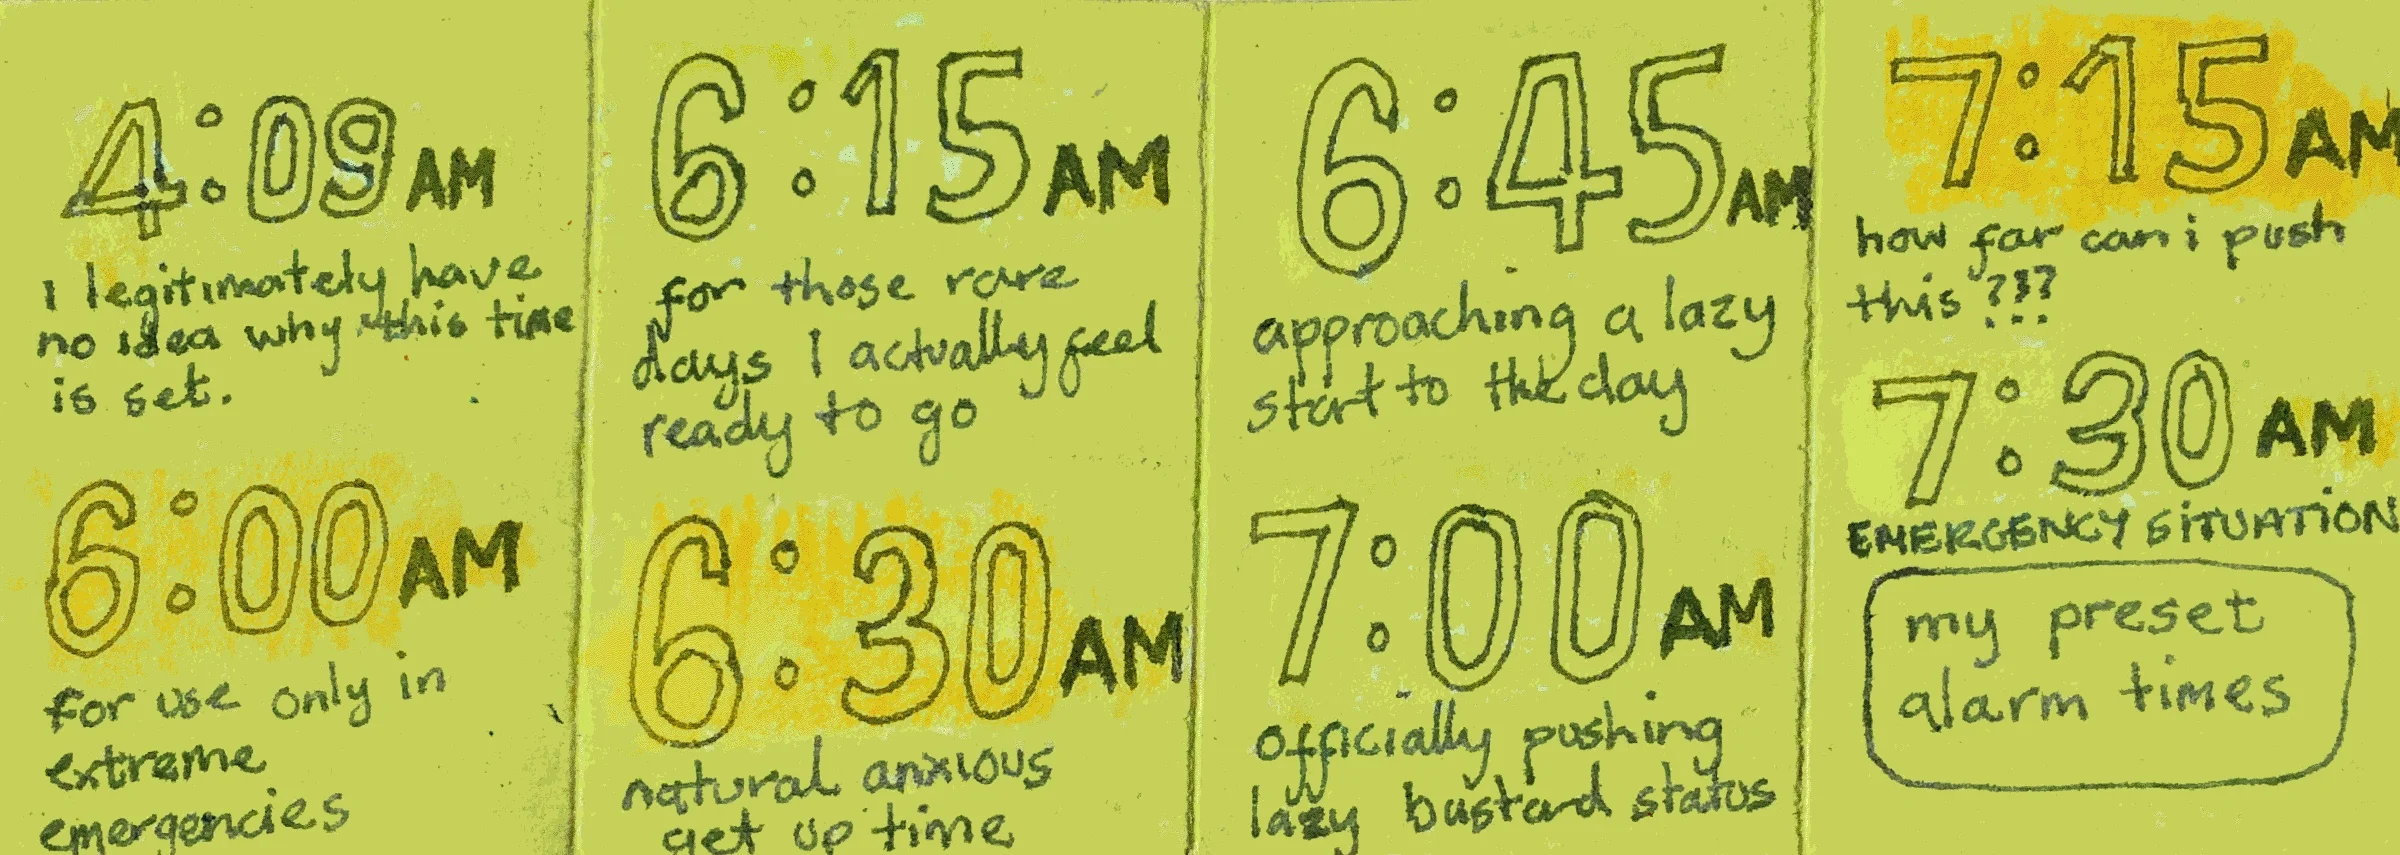 4:09 AM
I legitimately have
no idea why this time
is set.
6:00 AM
for use only in
extreme
emergencies
6:15 AM
for those rare
days I actually feel
ready to go
6:30 AM
natural anxious
get up time
6:45 AM
approaching a lazy
start to the day
7:00 AM
officially pushing
lazy bastard status
7:15 AM
how far can i push
this ???
7:30 AM
EMERGENCY SITUATION
my preset
alarm times